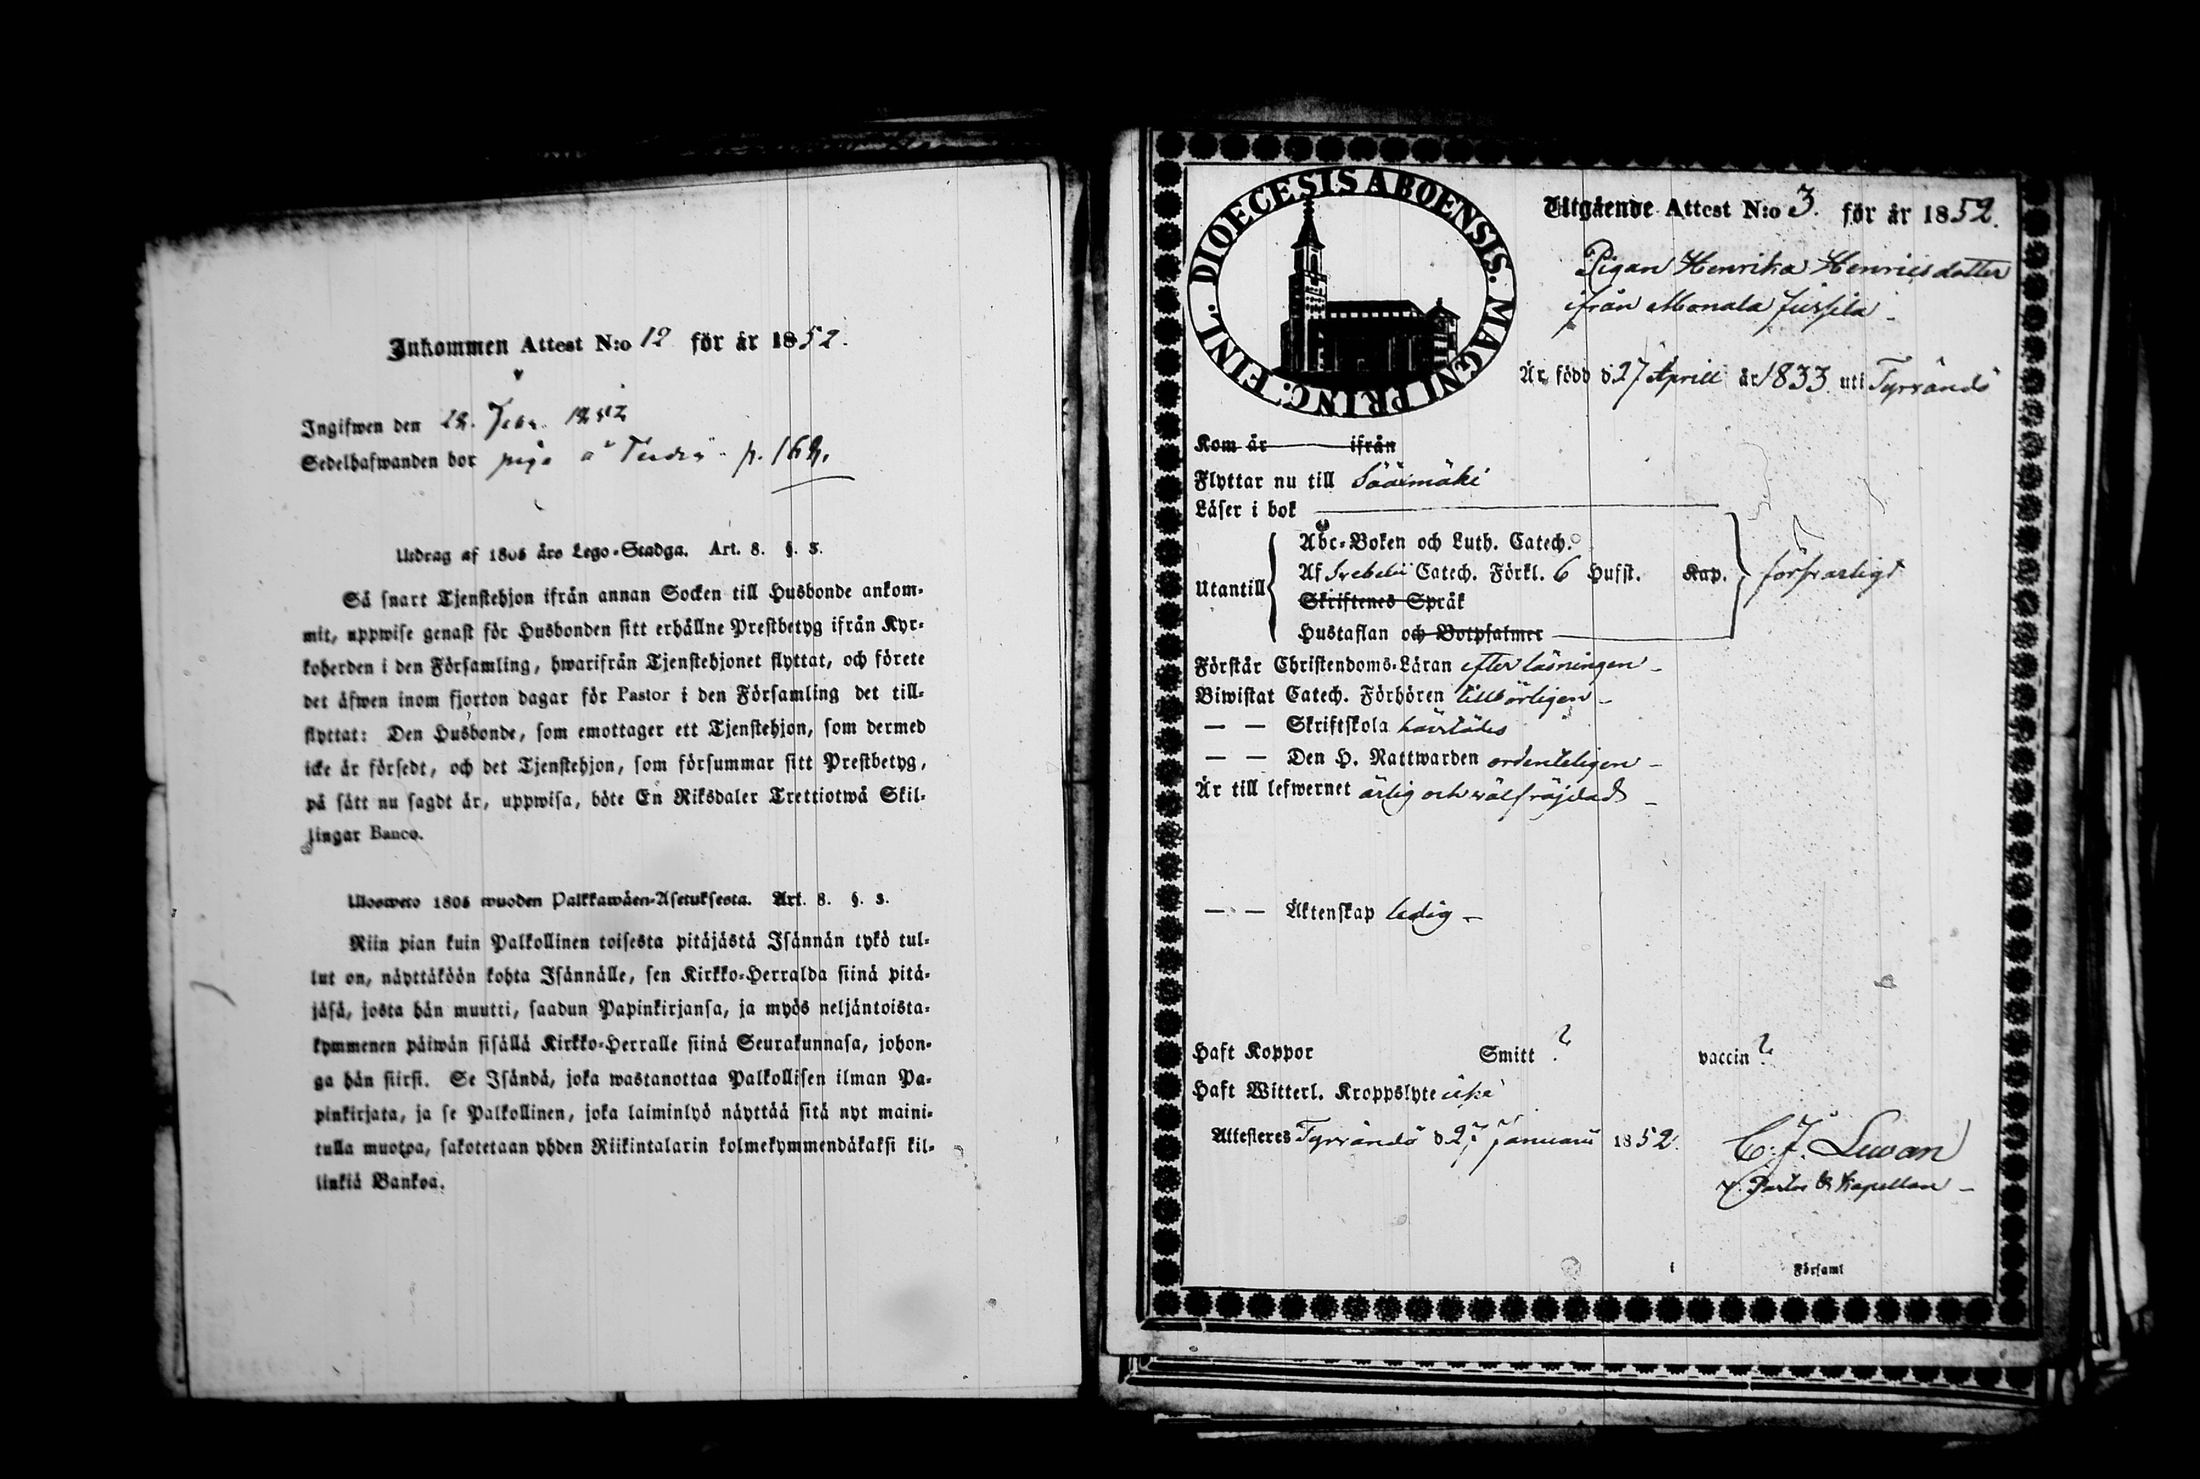 Inkommen Attest N:o 12 för år 1852.
Ingifwen den 28. Febr. 1852
Sedelhafwanden bor piga å p. 168.
Utdrag af 1805 års Lego-Stadga. Art. 8. §. 3.
Så snart Tjenstehjon ifrån annan Socken till Husbonde ankom-
mit, uppwise genast för Husbonden sitt erhållne Prestbetyg ifrån Kyr-
koherden i den Församling, hwarifrån Tjenstehjonet flyttat, och förete
det äfwen inom fjorton dagar för Pastor i den Församling det till-
flyttat: Den Husbonde, som emottager ett Tjenstehjon, som dermed
icke är försedt, och det Tjenstehjon, som försummar sitt Prestbetyg,
på sätt nu sagdt är, uppwisa, böte En Riksdaler Trettiotwå Skil-
lingar Banco.
Ulosweto 1805 wuoden Palkkawäen-Asetuksesta. Art. 8. §. 3.
Niin pian kuin Palkollinen toisesta pitäjästä Isännän tykö tul-
lut on, näyttäköön kohta Isännälle, sen Kirkko-Herralda siinä pitä-
jäsä, josta hän muutti, saadun Papinkirjansa, ja myös neljäntoista-
kymmenen päiwän sisällä Kirkko-Herralle siinä Seurakunnasa, johon-
ga hän siirsi. Se Isändä, joka wastanottaa Palkollisen ilman Pa-
pinkirjata, ja se Palkollinen, joka laiminlyö näyttää sitä nyt maini-
tulla muotoa, sakotetaan yhden Riikintalarin kolmekymmendäkaksi kil-
linkiä Bankoa.
DIOECESIS ABOENSIS. MAGNI PRINC. FINL.
Utgående Attest N:o 3. för år 1852.
Pigan Henrika Henricsdotter
ifrån Monala
Är född d. 27 Aprill år 1833 uti Tyrvändö
Kom år ifrån
Flyttar nu till Sääxmäki
Läser i bok
Utantill
Abc-Boken och Luth. Catech.
Af Svebelii Catech. Förkl. 6 Hufst. Kap.
Skriftenes Språk
Hustaflan och Botpsalmer
försvarligt
Förstår Christendoms-Läran efter läsningen
Biwistat Catech. Förhören tillbörligen
— — Skriftskola härstädes
— — Den H. Nattwarden ordenteligen
Är till lefwernet ärlig och wälfräjdad
— — Äktenskap ledig
Haft Koppor Smitt ? vaccin ?
Haft Witterl. Kroppslyte icke
Attesteras Tyrvändö d. 27 Januarii 1852.
C. J. Lewan
v. Pastor & Kapellan
i Församl